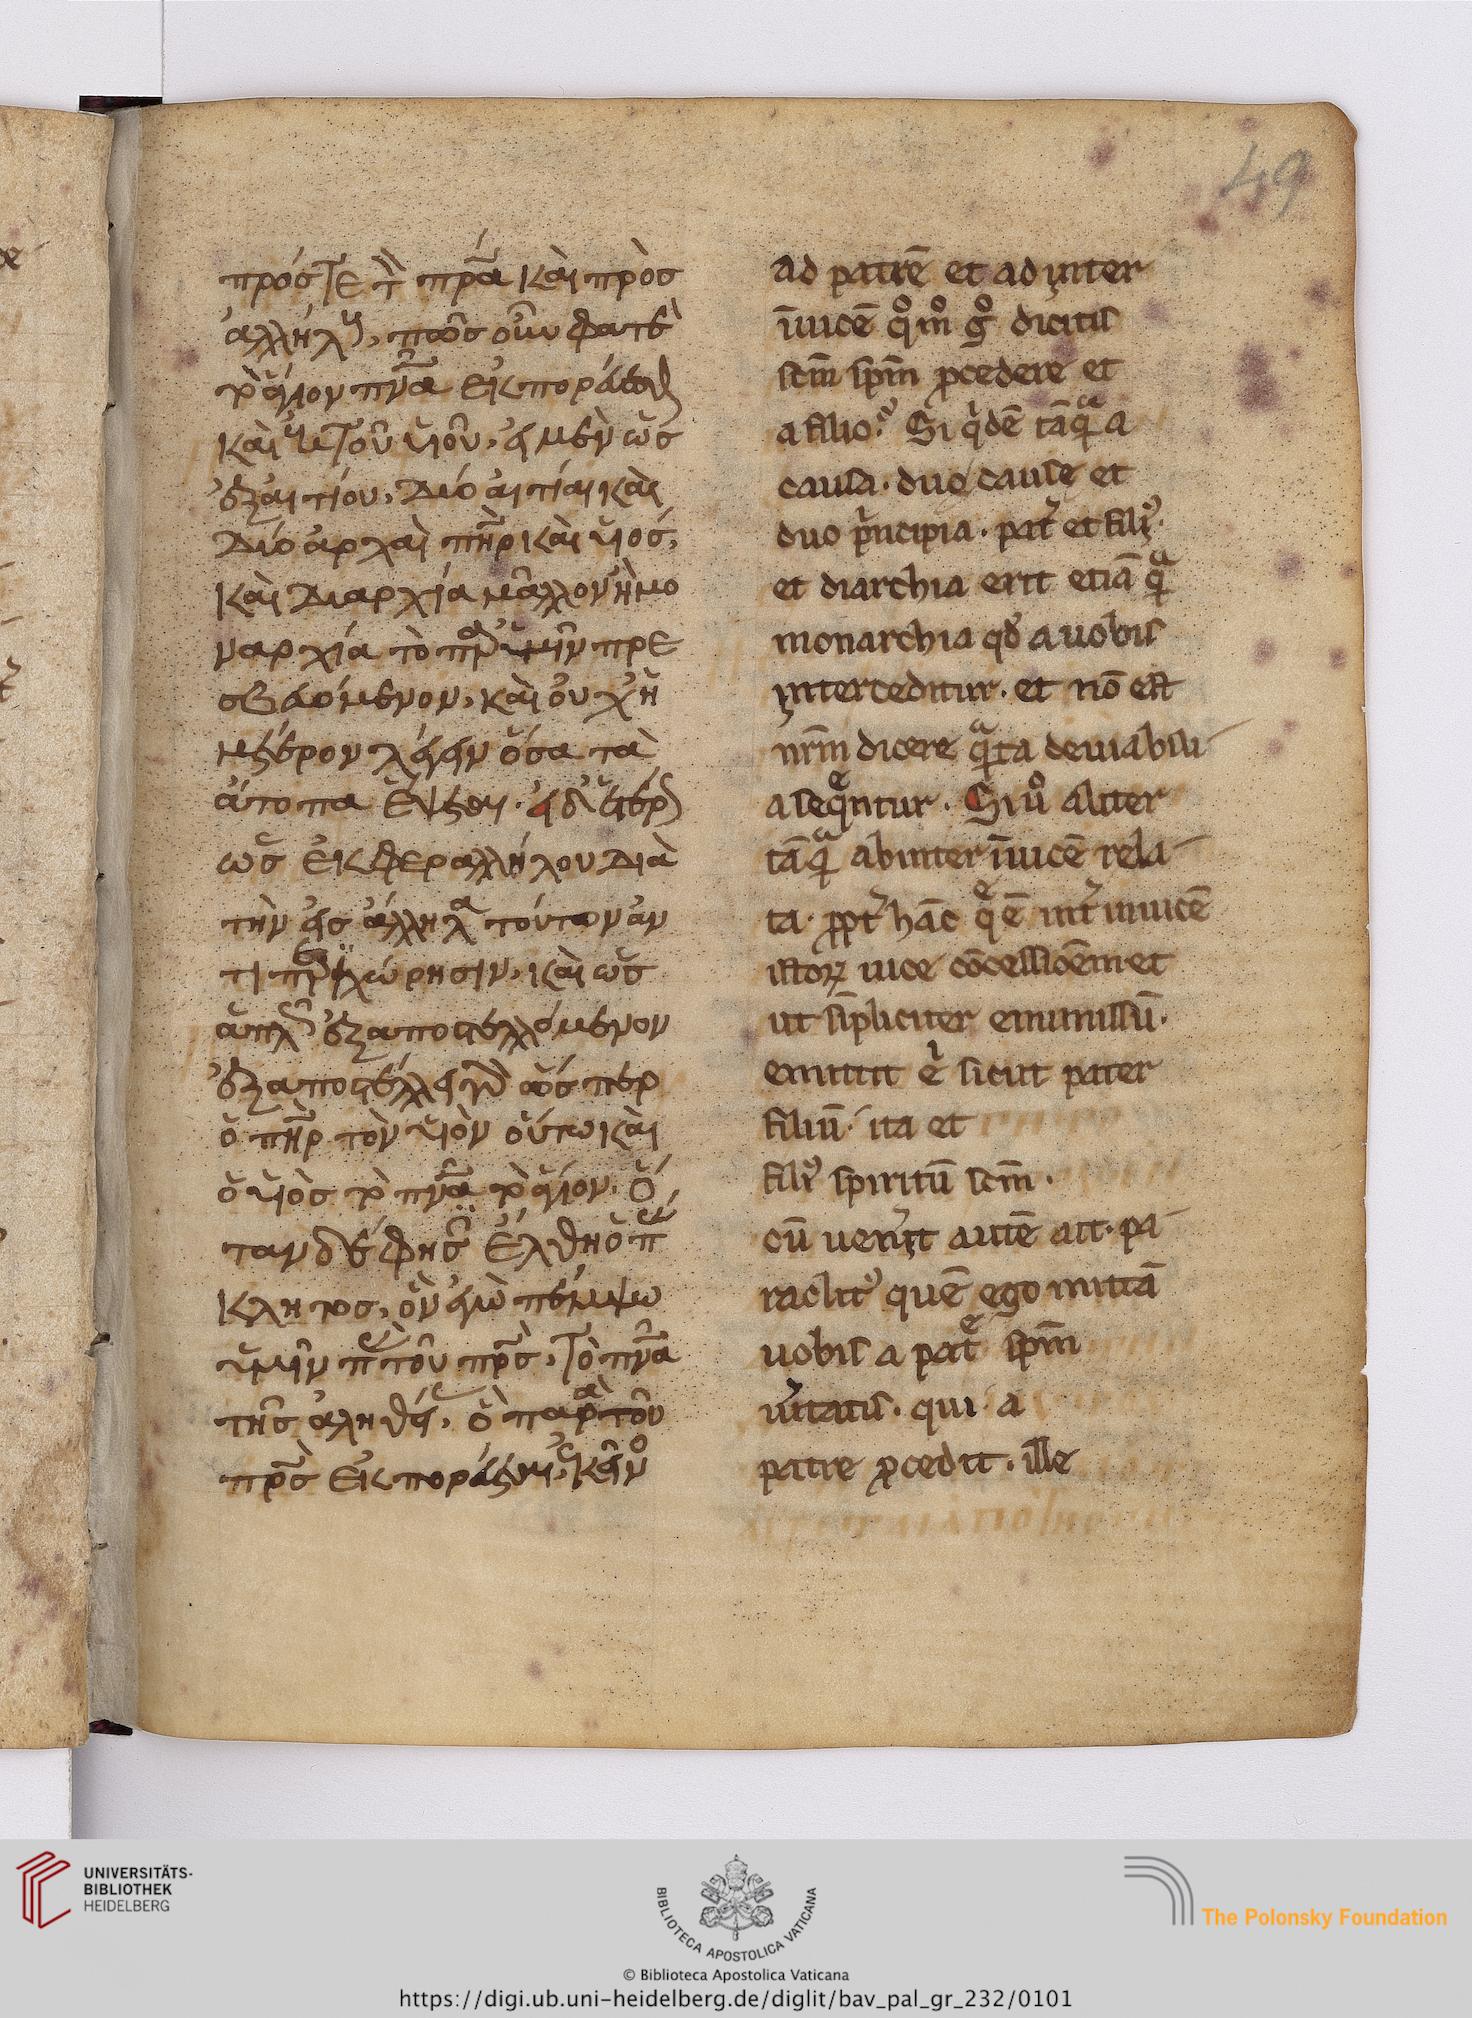 49
πρός τε τ πρᾶ καὶ πρὸς
ἀλλήλ, πῶς οὖν φατὲ
τὸ ἅγιον πνᾶ ἐκπορεύεσθ
καὶ ἐκ τοῦ υἱοῦ, εἰ μὲν ὡς
ἐξ αἰτίου, δύο αἰτίαι καὶ
δύο ἀρχαὶ πηρ καὶ υἱός,
καὶ διαρχία μᾶλλον ἢ μο
ναρχία τὸ πρ ὑμῖν πρε
σβευόμενον, καὶ οὐχ ἡ
μέτερον λέγειν ὅσα τὰ
ἄτοπα ἕψεται. εἰ δ ἑτέρ
ὡς ἐκ θεραλλήλου διὰ
τὴν εἰς ἄλληλα τούτων ἀν
τιπχώρησιν, καὶ ὡς
ἁπλ ἐξαποστελλόμενον
ἐξαποστέλλει ὥσπερ
ὁ πηρ τὸν υἱὸν οὕτω καὶ
ὁ υἱὸς τὸ πνᾶ τὸ ἅγιον. ὅ
ταν δέ φησ ἔλθη ὁ π
κλητος, ὃν ἐγὼ πέμψω
ὑμῖν π τοῦ πρς, τὸ πνᾶ
τῆς ἀληθεί, ὃ παρὰ τοῦ
πρς ἐκπορεύεται, ἐκεῖνο
ad patrē et ad inter
īuicē qᵒm gᵒ dicitis
scm̄ spm̄ pcedere et
a filio? Si qdē tāqᵃ a
causa. duo cause et
duo pncipia. pat et fili⁹.
et diarchia erit etiā qᵃ
monarchia qd a uobis
interceditur. et nō est
nrm̄ dicere qᵃta deuiabili
a seqntur. Si uᵒ aliter
tāqᵃ ab inter īuicē rela
ta. ppt hāc q ē int inuicē
istoꝝ uice cōcessiōem et
ut sīpliciter emmissū.
emittit ē sicut pater
filiū. ita et
fili⁹ spiritū scm̄.
cū uenit autē ait. pa
raclit⁹ quē ego mittā
uobis a pat spm̄
uitatis. qui a
patre pcedit. ille
UNIVERSITÄTS-
BIBLIOTHEK
HEIDELBERG
BIBLIOTECA APOSTOLICA VATICANA
The Polonsky Foundation
© Biblioteca Apostolica Vaticana
https://digi.ub.uni-heidelberg.de/diglit/bav_pal_gr_232/0101